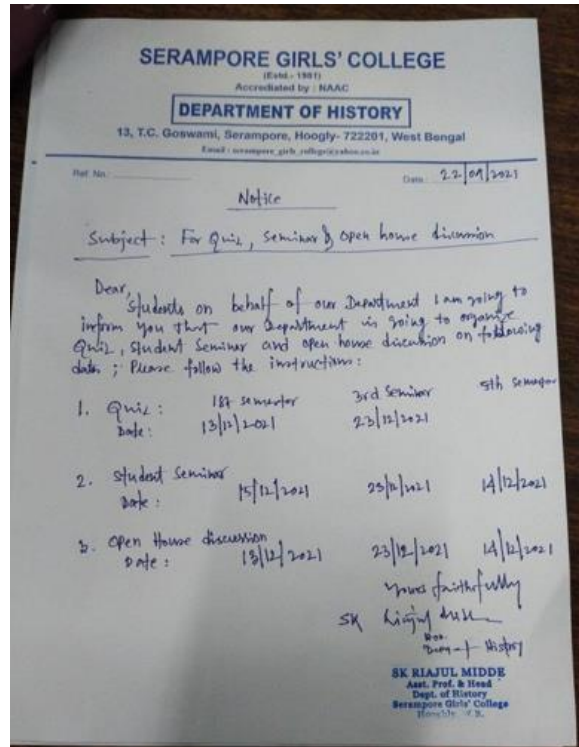 SERAMPORE GIRLS' COLLEGE
(Estd.- 1981)
Accrediated by : NAAC
DEPARTMENT OF HISTORY
13, T.C. Goswami, Serampore, Hoogly- 722201, West Bengal
Email : serampore_girls_college@yahoo.co.in
Ref. No.: Date: 22/09/2021
Notice
Subject : For Quiz, Seminar & open house discussion
Dear,
Students on behalf of our Department I am going to
inform you that our Department is going to organize
Quiz, Student Seminar and open house discussion on following
dates ; Please follow the instructions :
1. Quiz : 1st semester 3rd Seminar 5th semester
Date : 13/12/2021 23/12/2021
2. Student Seminar
Date : 15/12/2021 23/12/2021 14/12/2021
3. Open House discussion
Date : 13/12/2021 23/12/2021 14/12/2021
Yours faithfully
SK
History
SK RIAJUL MIDDE
Asst. Prof. & Head
Dept. of History
Serampore Girls' College
Hooghly, W.B.